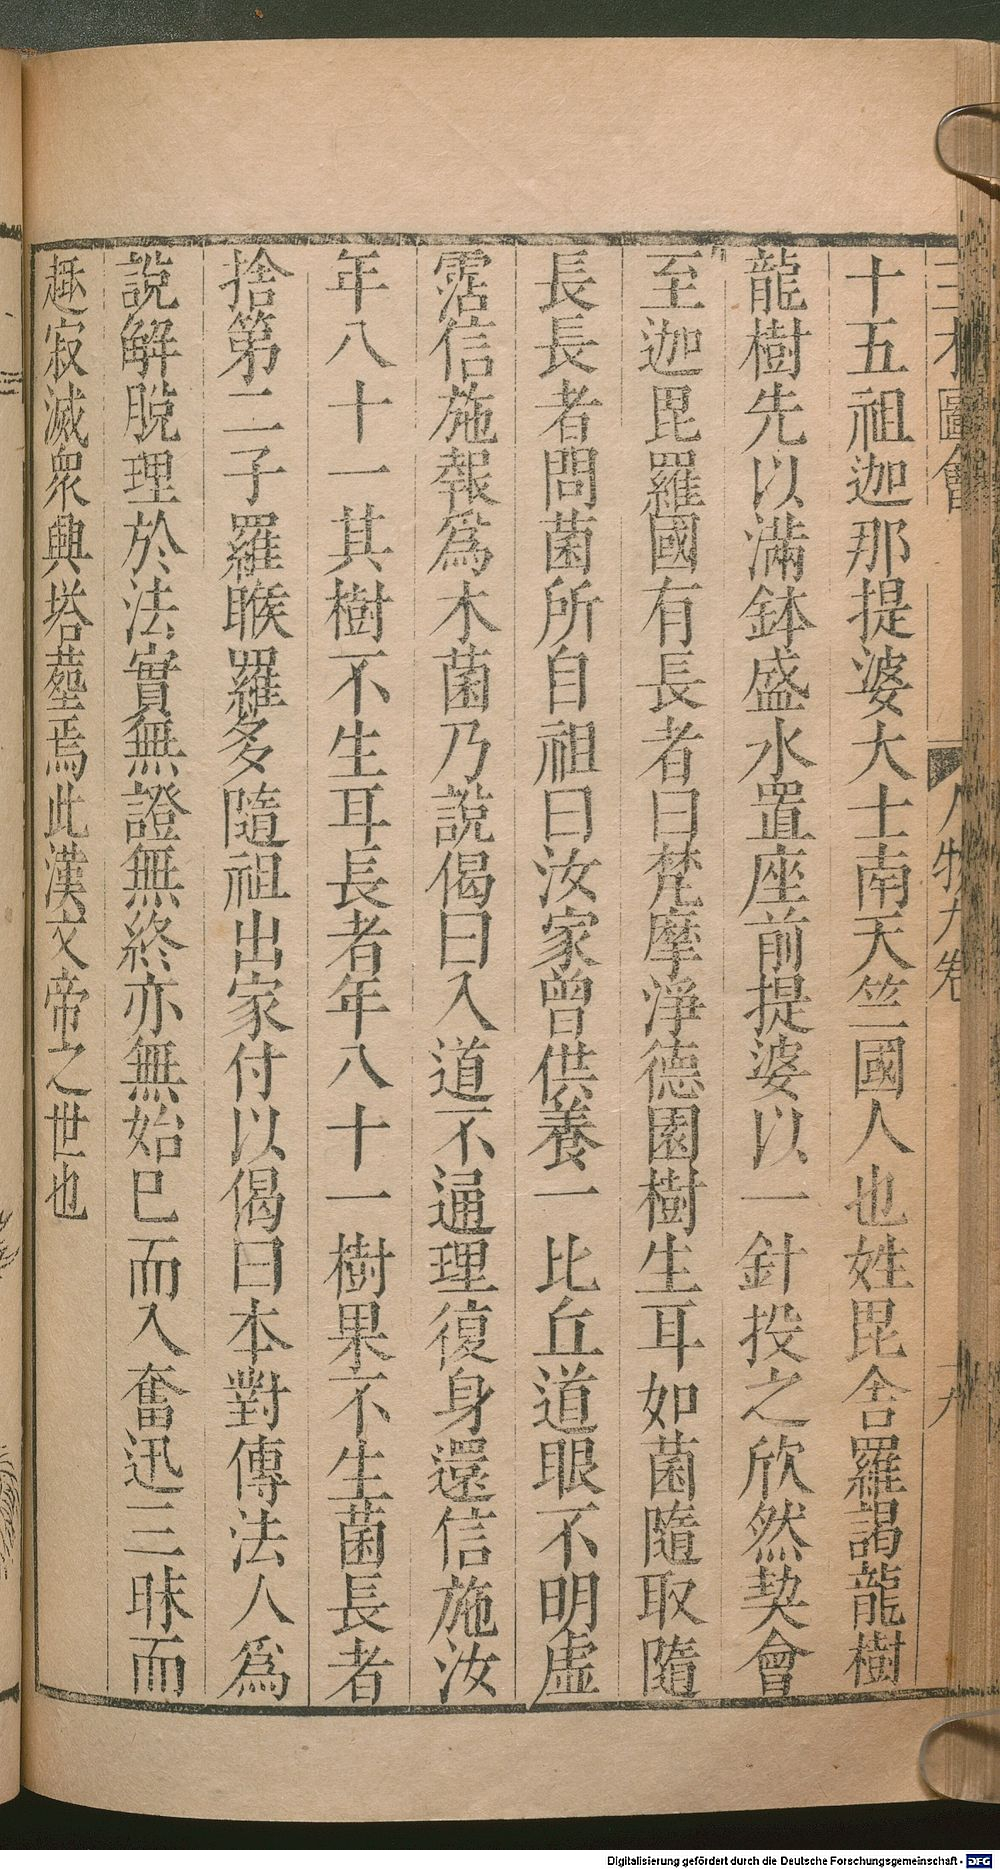 三才圖會 人物九卷 十九
十五祖迦那提婆大士南天竺國人也姓毘舍羅謁龍樹
龍樹先以滿鉢盛水置座前提婆以一針投之欣然契會
至迦毘羅國有長者曰梵摩淨德園樹生耳如菌隨取隨
長長者問菌所自祖曰汝家曾供養一比丘道眼不明虛
霑信施報爲木菌乃說偈曰入道不通理復身還信施汝
年八十一其樹不生耳長者年八十一樹果不生菌長者
捨第二子羅睺羅多隨祖出家付以偈曰本對傳法人爲
說解脫理於法實無證無終亦無始巳而入奮迅三昧而
趣寂滅衆興塔𦵏焉此漢文帝之世也
Digitalisierung gefördert durch die Deutsche Forschungsgemeinschaft - DFG